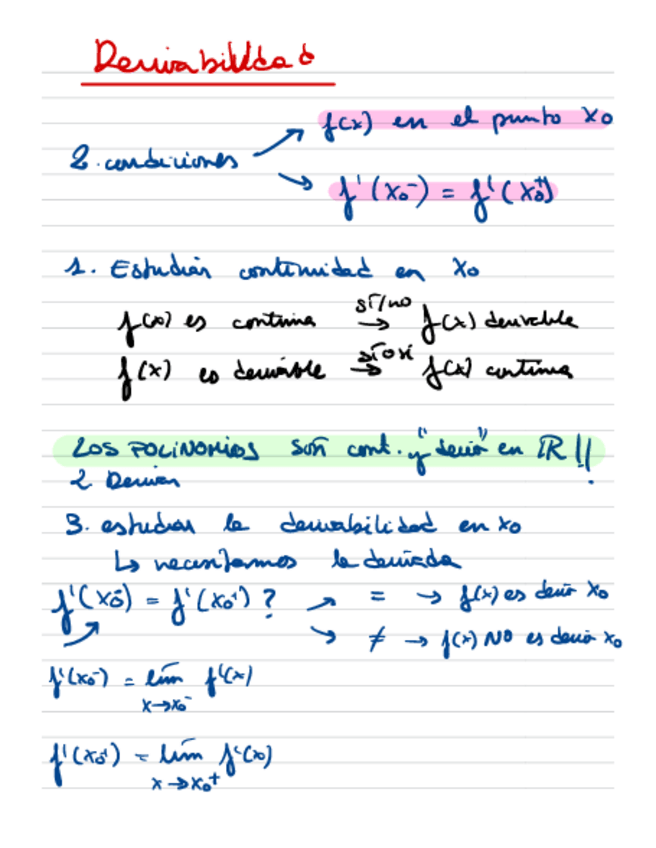 Derivabilidad
f(x) en el punto x₀
2. condiciones
f'(x₀⁻) = f'(x₀⁺)
1. Estudiar continuidad en x₀
f(x) es continua →(sí/no) f(x) derivable
f(x) es derivable →(sí o sí) f(x) continua
LOS POLINOMIOS son cont. y "deriv" en ℝ!!
2 Derivar
3. estudiar la derivabilidad en x₀
↳ necesitamos la derivada
f'(x₀⁻) = f'(x₀⁺)? → = → f(x) es deriv x₀
→ ≠ → f(x) NO es deriv x₀
f'(x₀⁻) = lím f'(x)
x→x₀⁻
f'(x₀⁺) = lím f'(x)
x→x₀⁺